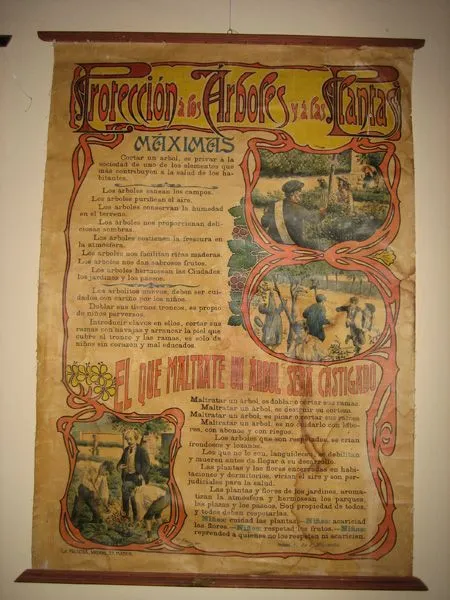 Protección á los Árboles y á las Plantas
MÁXIMAS
Cortar un árbol, es privar a la
sociedad de uno de los elementos que
más contribuyen a la salud de los ha-
bitantes.
Los árboles sanean los campos.
Los árboles purifican el aire.
Los árboles conservan la humedad
en el terreno.
Los árboles nos proporcionan deli-
ciosas sombras.
Los árboles sostienen la frescura en
la atmósfera.
Los árboles nos facilitan ricas maderas.
Los árboles nos dan sabrosos frutos.
Los árboles hermosean las Ciudades,
los jardines y los paseos.
Los arbolitos nuevos, deben ser cui-
dados con cariño por los niños.
Doblar sus tiernos troncos, es propio
de niños perversos.
Introducir clavos en ellos, cortar sus
ramas con navajas y arrancar la piel que
cubre el tronco y las ramas, es solo de
niños sin corazón y mal educados.
EL QUE MALTRATE UN ÁRBOL SERÁ CASTIGADO
Maltratar un árbol, es doblar o cortar sus ramas.
Maltratar un árbol, es destruir su corteza.
Maltratar un árbol, es picar o cortar sus raíces.
Maltratar un árbol, es no cuidarlo con labo-
res, con abonos y con riegos.
Los árboles que son respetados, se crían
frondosos y lozanos.
Los que no lo son, languidecen, se debilitan
y mueren antes de llegar a su desarrollo.
Las plantas y las flores encerradas en habi-
taciones y dormitorios, vician el aire y son per-
judiciales para la salud.
Las plantas y flores de los jardines, aroma-
tizan la atmósfera y hermosean los parques,
las plazas y los paseos. Son propiedad de todos
y todos deben respetarlas.
Niños: cuidad las plantas—Niños: acariciad
las flores.—Niños: respetad los frutos.—Niños:
reprended a quienes no los respeten ni acaricien.